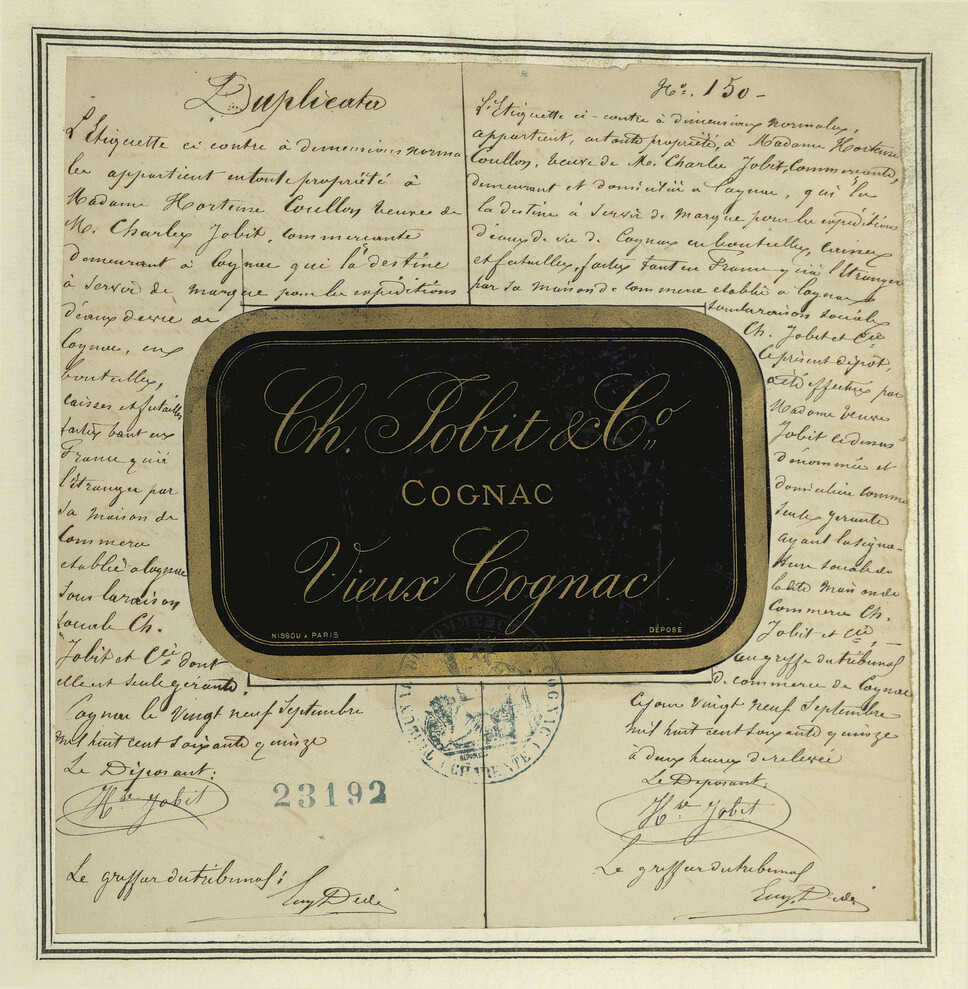 Duplicata
L'Etiquette ci contre à dimensions norma
les appartient en toute propriété à
Madame Hortense Coullon Veuve de
M. Charles Jobit, Commerçante
demeurant à Cognac qui la destine
à servir de marque pour les expéditions
d'eaux de vie de
Cognac, en
bouteilles,
caisses et futailles
faites tant en
France qu'à
l'étranger par
sa maison de
Commerce
etablie à Cognac
sous la raison
sociale Ch.
Jobit et Cie dont
elle est seule gérante.
Cognac le Vingt neuf Septembre
mil huit cent soixante quinze
Le Déposant:
Hse Jobit
23192
Le greffier du tribunal:
Eug. Dédé
No. 150 -
L'Etiquette ci-contre à dimensions normales,
appartient, en toute propriété, à Madame Hortense
Coullon, Veuve de M. Charles Jobit, Commerçante,
demeurant et domiciliée à Cognac, qui
la destine à servir de marque pour les expéditions
d'eaux de vie de Cognac en bouteilles, caisses
et futailles, faites tant en France qu'à l'étranger
par sa maison de commerce etablie à Cognac
sous la raison sociale
Ch. Jobit et Cie
Le présent dépôt,
a été effectué par
Madame Veuve
Jobit ci-dessus
dénommée et
domiciliée comme
seule gérante
ayant la signa-
ture sociale de
la dite maison de
Commerce Ch.
Jobit et Cie,
au greffe du tribunal
de commerce de Cognac
ce jour Vingt neuf Septembre
mil huit cent soixante quinze
à deux heures de relevée
Le Déposant:
Hse Jobit
Le greffier du tribunal
Eug. Dédé
Ch. Jobit & Co
COGNAC
Vieux Cognac
NISSOU A PARIS
DÉPOSÉ
TRIBUNAL DE COMMERCE DE COGNAC (CHARENTE)